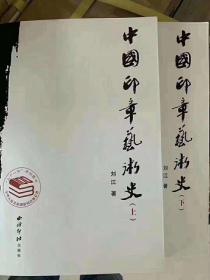 中國印章藝術史（上）
刘江 著
西泠印社出版社
中國印章藝術史（下）
刘江 著